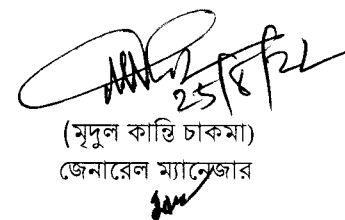 25/8/22
(মৃদুল কান্তি চাকমা)
জেনারেল ম্যানেজার